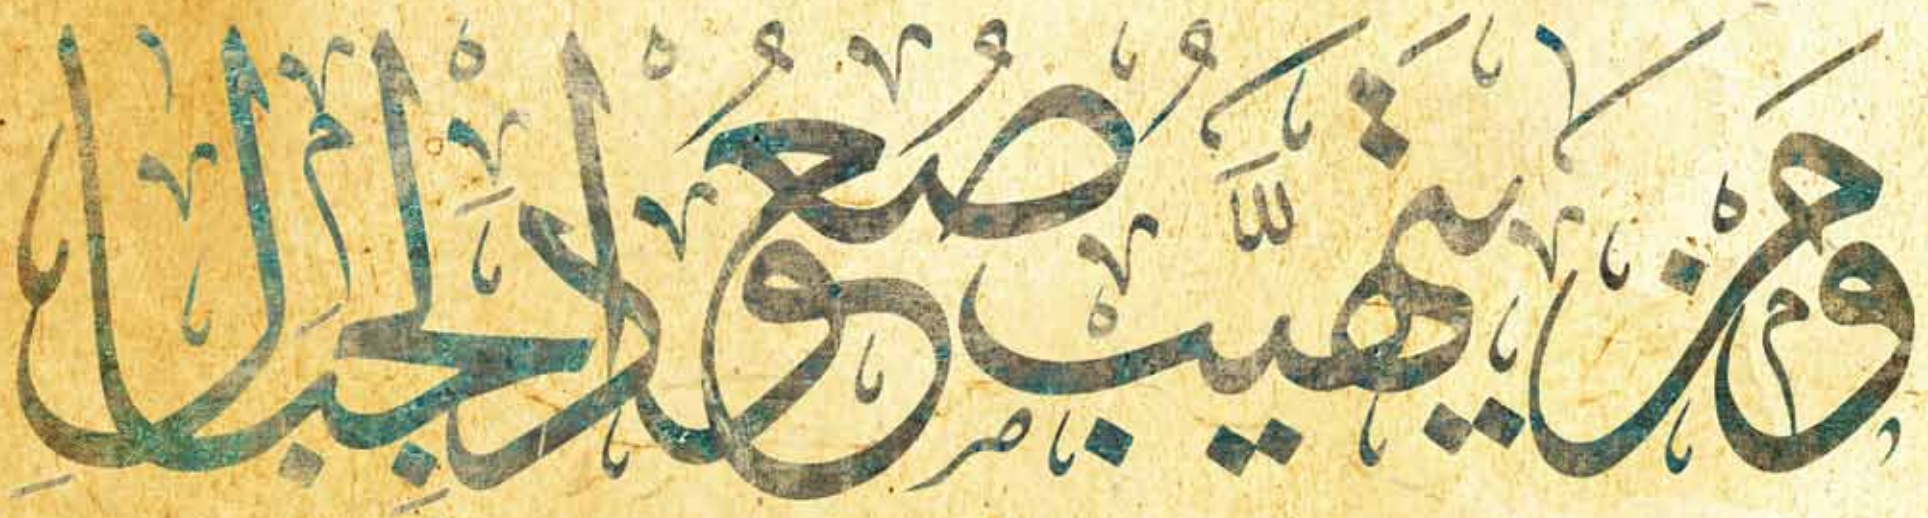 وَمَنْ يَتَهَيَّبْ صُعُودَ الْجِبَالِ